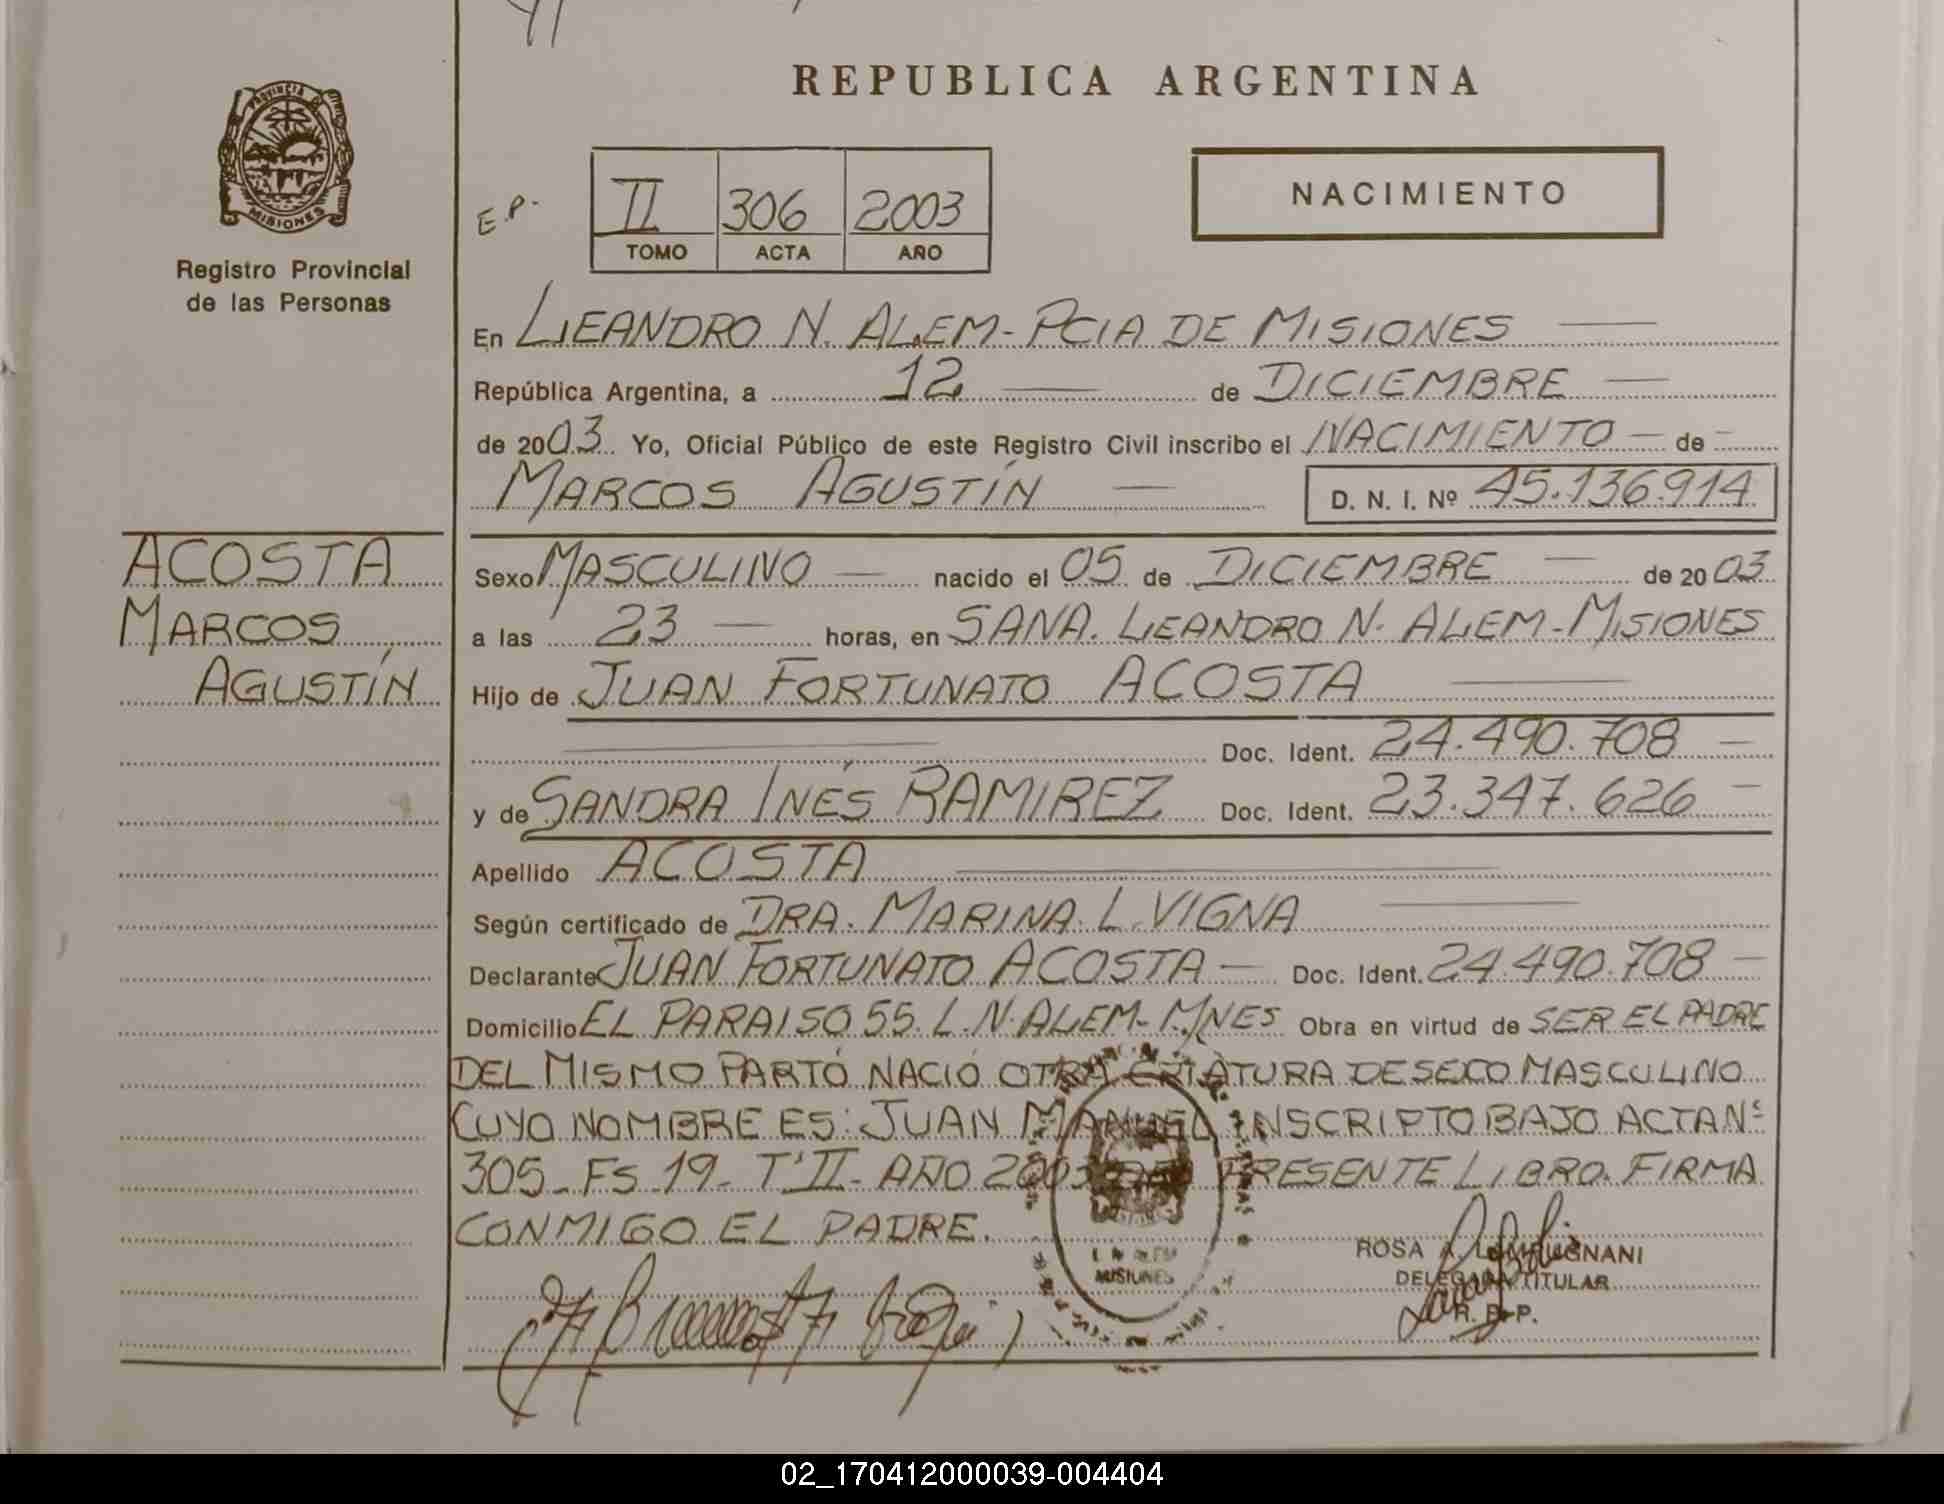 REPUBLICA ARGENTINA
PROVINCIA D
MISIONES
Registro Provincial
de las Personas
E.P.
II 306 2003
TOMO ACTA AÑO
NACIMIENTO
En LEANDRO N. ALEM - PCIA DE MISIONES
República Argentina, a 12 de DICIEMBRE
de 2003 Yo, Oficial Público de este Registro Civil inscribo el NACIMIENTO de
MARCOS AGUSTÍN D. N. I. Nº 45.136.914
ACOSTA
MARCOS
AGUSTÍN
Sexo MASCULINO nacido el 05 de DICIEMBRE de 2003
a las 23 horas, en SANA. LEANDRO N. ALEM - MISIONES
Hijo de JUAN FORTUNATO ACOSTA
Doc. Ident. 24.490.708
y de SANDRA INÉS RAMIREZ Doc. Ident. 23.347.626
Apellido ACOSTA
Según certificado de DRA. MARINA L. VIGNA
Declarante JUAN FORTUNATO ACOSTA Doc. Ident. 24.490.708
Domicilio EL PARAISO 55. L. N. ALEM - MNES Obra en virtud de SER EL PADRE
DEL MISMO PARTO NACIÓ OTRA CRIATURA DE SEXO MASCULINO
CUYO NOMBRE ES: JUAN MANUEL INSCRIPTO BAJO ACTA Nº
305 - FS 19 - Tº II - AÑO 2003 DEL PRESENTE LIBRO. FIRMA
CONMIGO EL PADRE.
MISIONES
ROSA A. LAMPUGNANI
DELEGADA TITULAR
R. P. P.
02_170412000039-004404